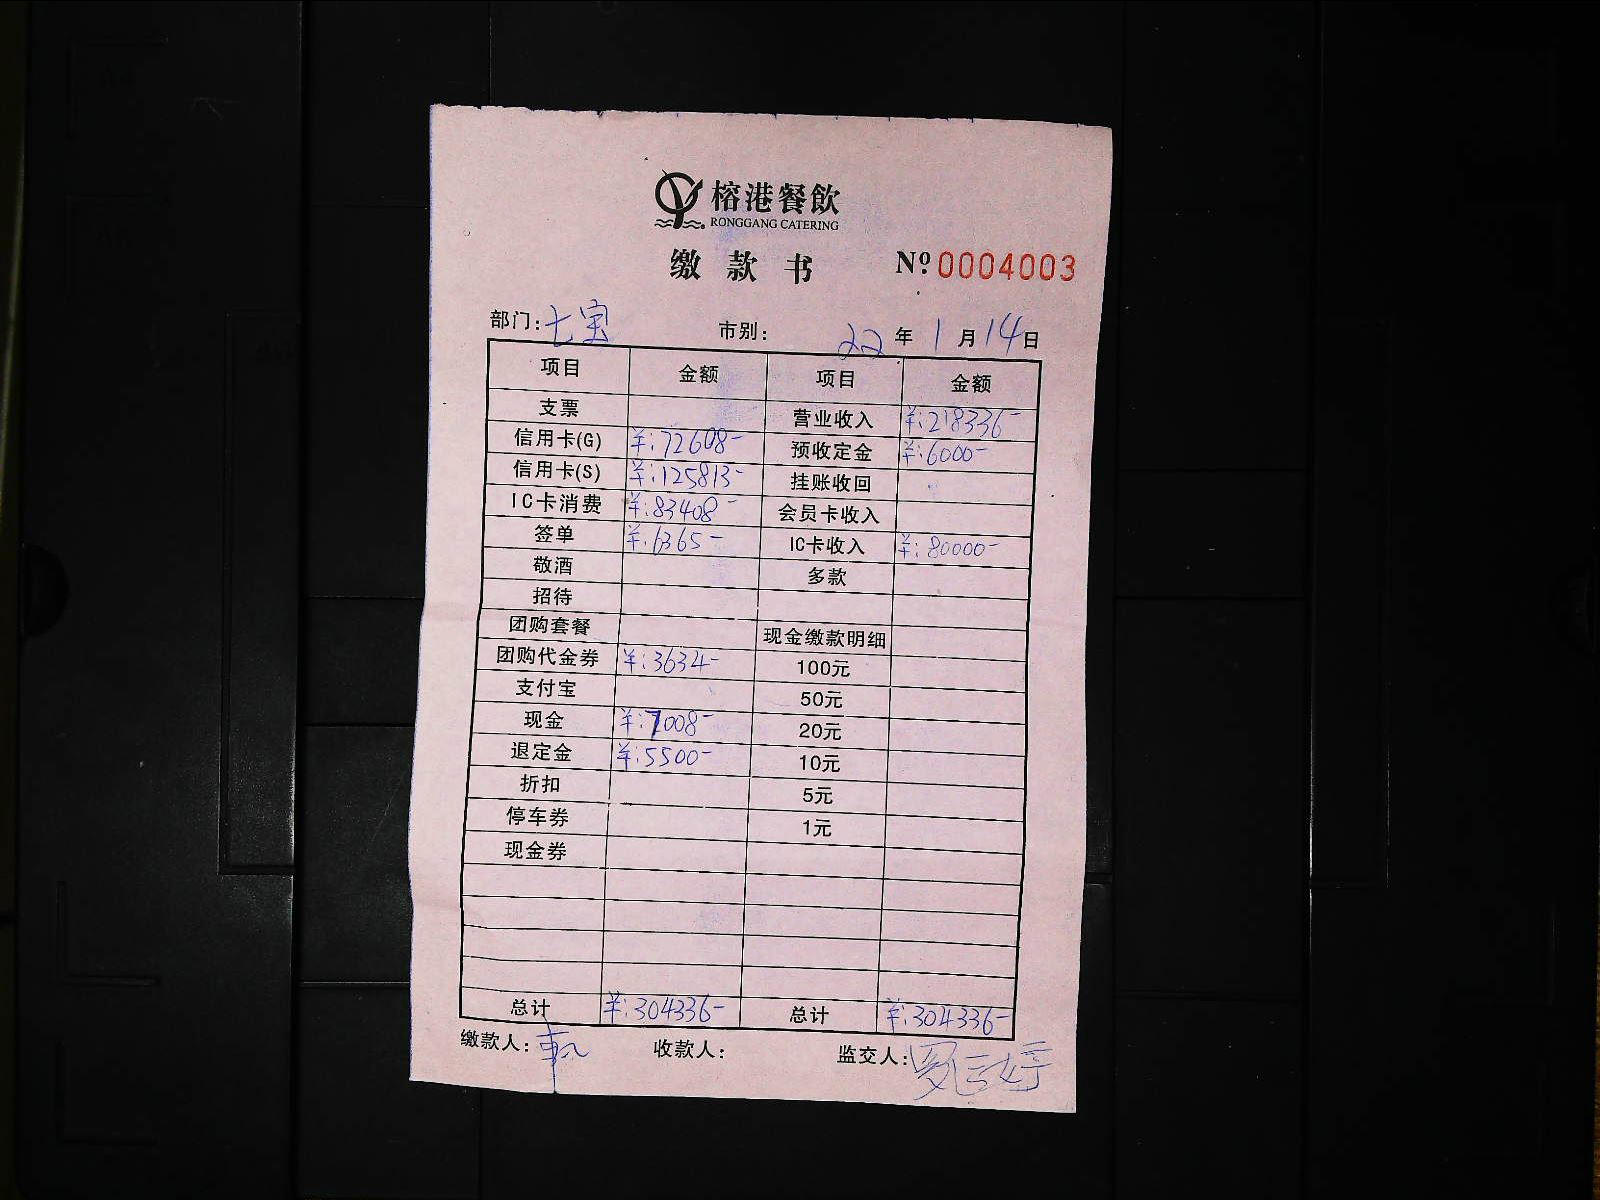 榕港餐飲
RONGGANG CATERING
缴款书 №0004003
部门:七宝 市别: 22年1月14日
项目 金额 项目 金额
支票 营业收入 ¥:218336-
信用卡(G) ¥:72608- 预收定金 ¥:6000-
信用卡(S) ¥:125813- 挂账收回
IC卡消费 ¥:83408- 会员卡收入
签单 ¥:6365- IC卡收入 ¥:80000-
敬酒 多款
招待
团购套餐 现金缴款明细
团购代金券 ¥:3634- 100元
支付宝 50元
现金 ¥:7008- 20元
退定金 ¥:5500- 10元
折扣 5元
停车券 1元
现金券
总计 ¥:304336- 总计 ¥:304336-
缴款人: 收款人: 监交人: